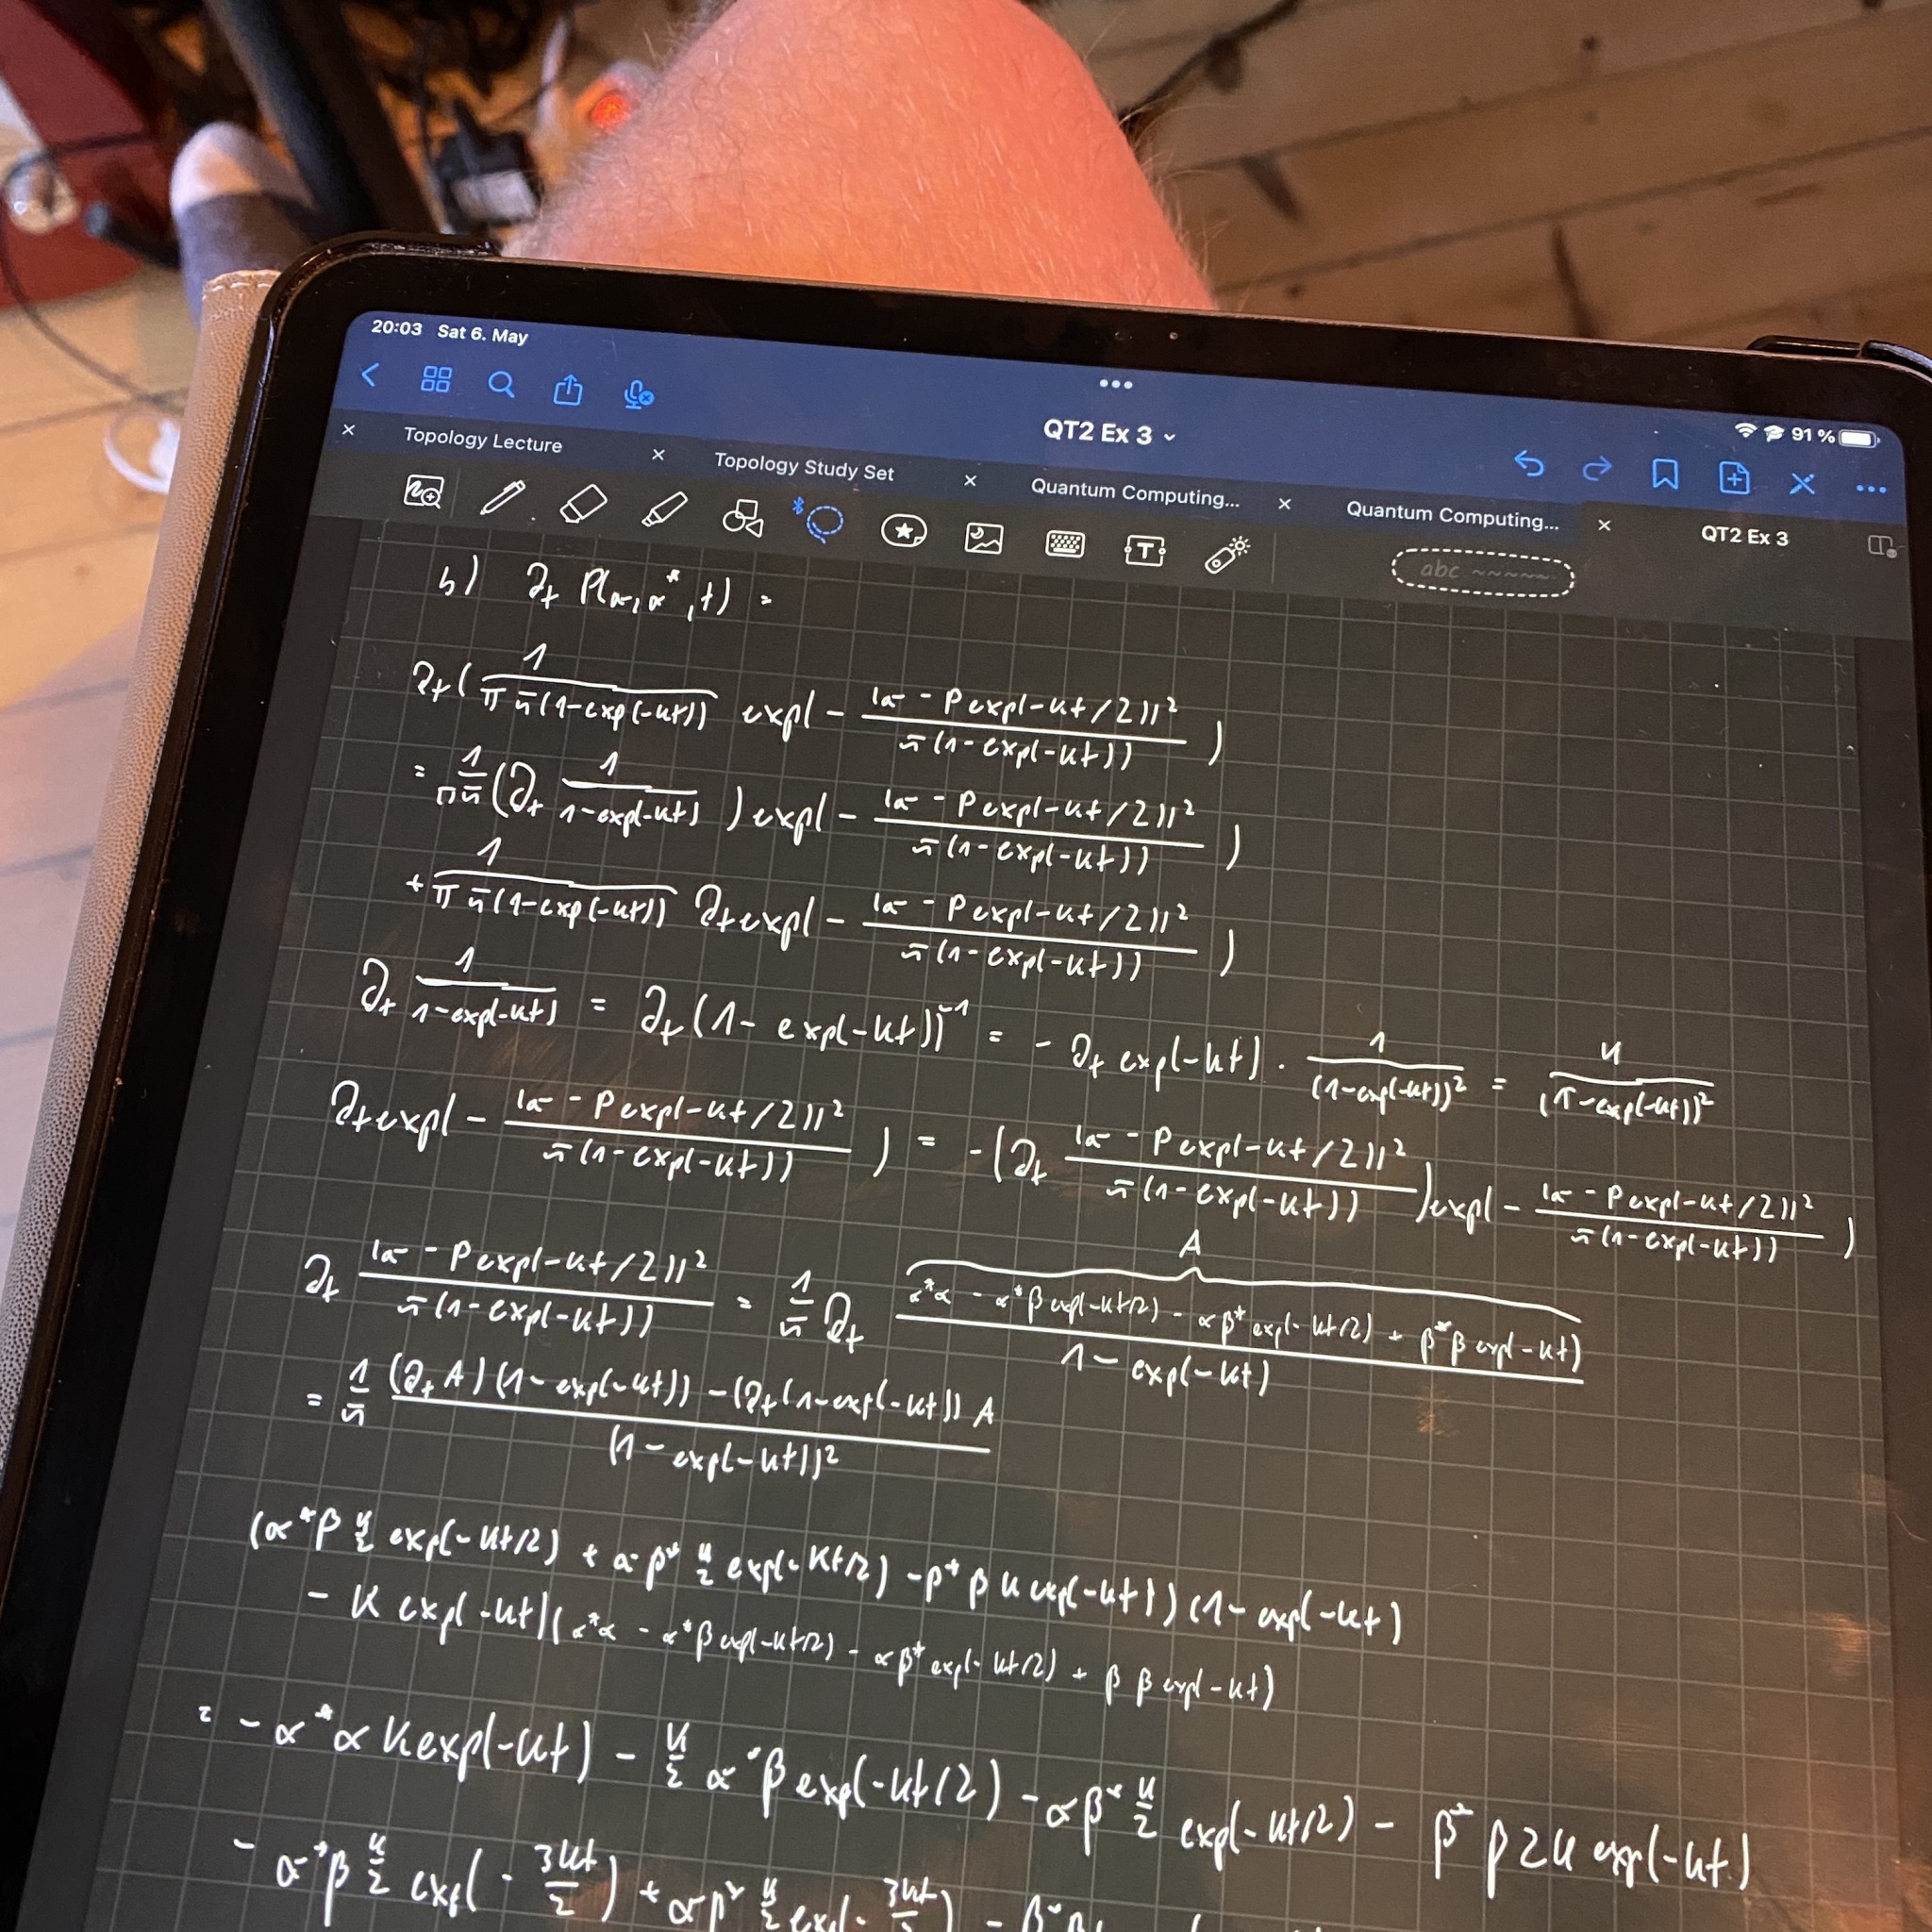 20:03 Sat 6. May
91 %
QT2 Ex 3
Topology Lecture
Topology Study Set
Quantum Computing...
Quantum Computing...
QT2 Ex 3
T
abc
b) ∂t P(α,α*,t) =
∂t( 1/(π n̄(1-exp(-κt))) exp(- |α - β exp(-κt/2)|²/(n̄(1-exp(-κt))) )
= 1/(π n̄) (∂t 1/(1-exp(-κt)) ) exp(- |α - β exp(-κt/2)|²/(n̄(1-exp(-κt))) )
+ 1/(π n̄(1-exp(-κt))) ∂t exp(- |α - β exp(-κt/2)|²/(n̄(1-exp(-κt))) )
∂t 1/(1-exp(-κt)) = ∂t (1- exp(-κt))⁻¹ = - ∂t exp(-κt) · 1/(1-exp(-κt))² = κ/(1-exp(-κt))²
∂t exp(- |α - β exp(-κt/2)|²/(n̄(1-exp(-κt))) ) = -(∂t |α - β exp(-κt/2)|²/(n̄(1-exp(-κt))) ) exp(- |α - β exp(-κt/2)|²/(n̄(1-exp(-κt))) )
A
∂t |α - β exp(-κt/2)|²/(n̄(1-exp(-κt))) = 1/n̄ ∂t (α*α - α*β exp(-κt/2) - αβ* exp(-κt/2) + β*β exp(-κt))/(1- exp(-κt))
= 1/n̄ ((∂t A)(1-exp(-κt)) - (∂t(1-exp(-κt)) A)/(1-exp(-κt))²
(α*β κ/2 exp(-κt/2) + αβ* κ/2 exp(-κt/2) - β*β κ exp(-κt)) (1- exp(-κt)
- κ exp(-κt)(α*α - α*β exp(-κt/2) - αβ* exp(-κt/2) + β β exp(-κt)
= - α*α κ exp(-κt) - κ/2 α*β exp(-κt/2) - αβ* κ/2 exp(-κt/2) - β*β 2κ exp(-κt)
- α*β κ/2 exp(- 3κt/2) + αβ* κ/2 exp(- 3κt/2) - β*β